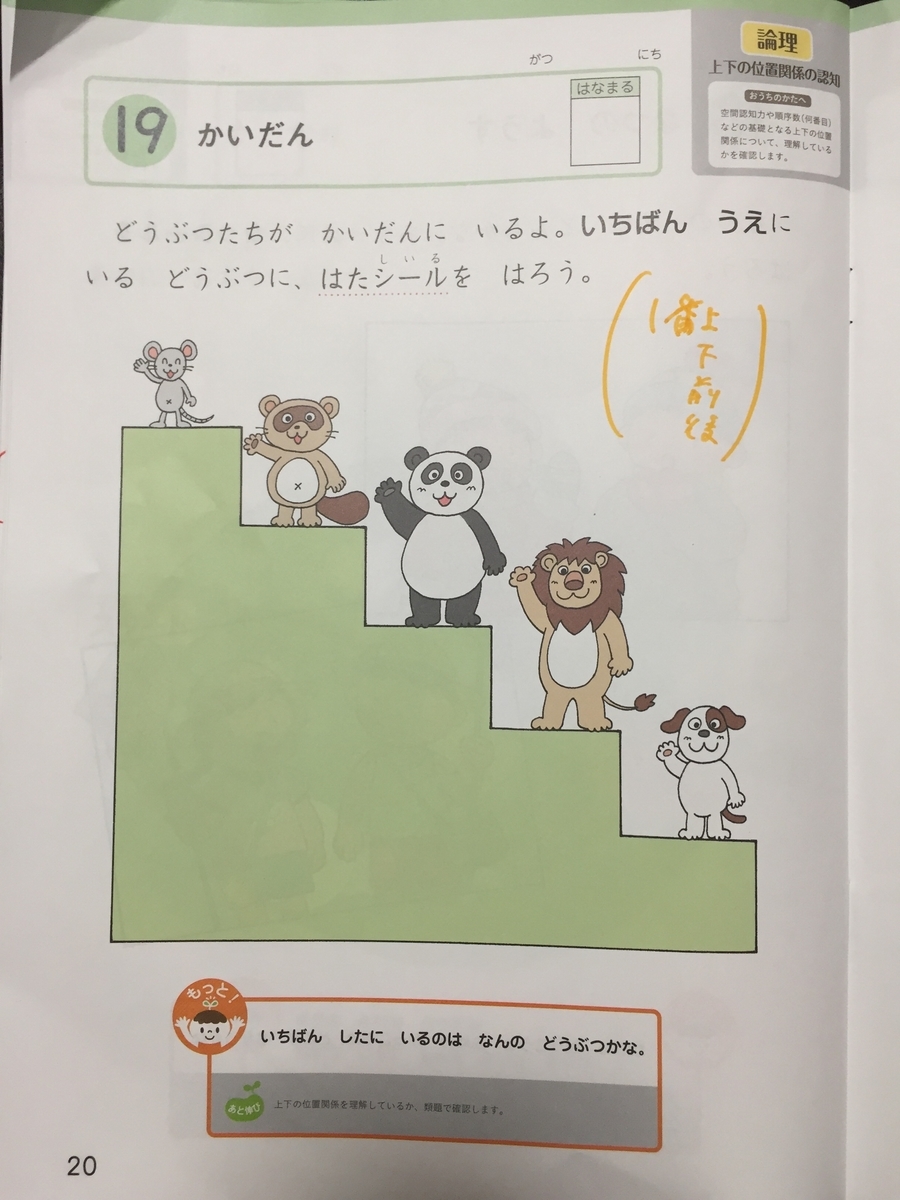 論理
上下の位置関係の認知
おうちのかたへ
空間認知力や順序数(何番目)
などの基礎となる上下の位置
関係について、理解している
かを確認します。
がつ にち
はなまる
19 かいだん
どうぶつたちが かいだんに いるよ。いちばん うえに
しいる
いる どうぶつに、はたシールを はろう。
1番上
下
前
後
もっと!
いちばん したに いるのは なんの どうぶつかな。
あと伸び
上下の位置関係を理解しているか、類題で確認します。
20